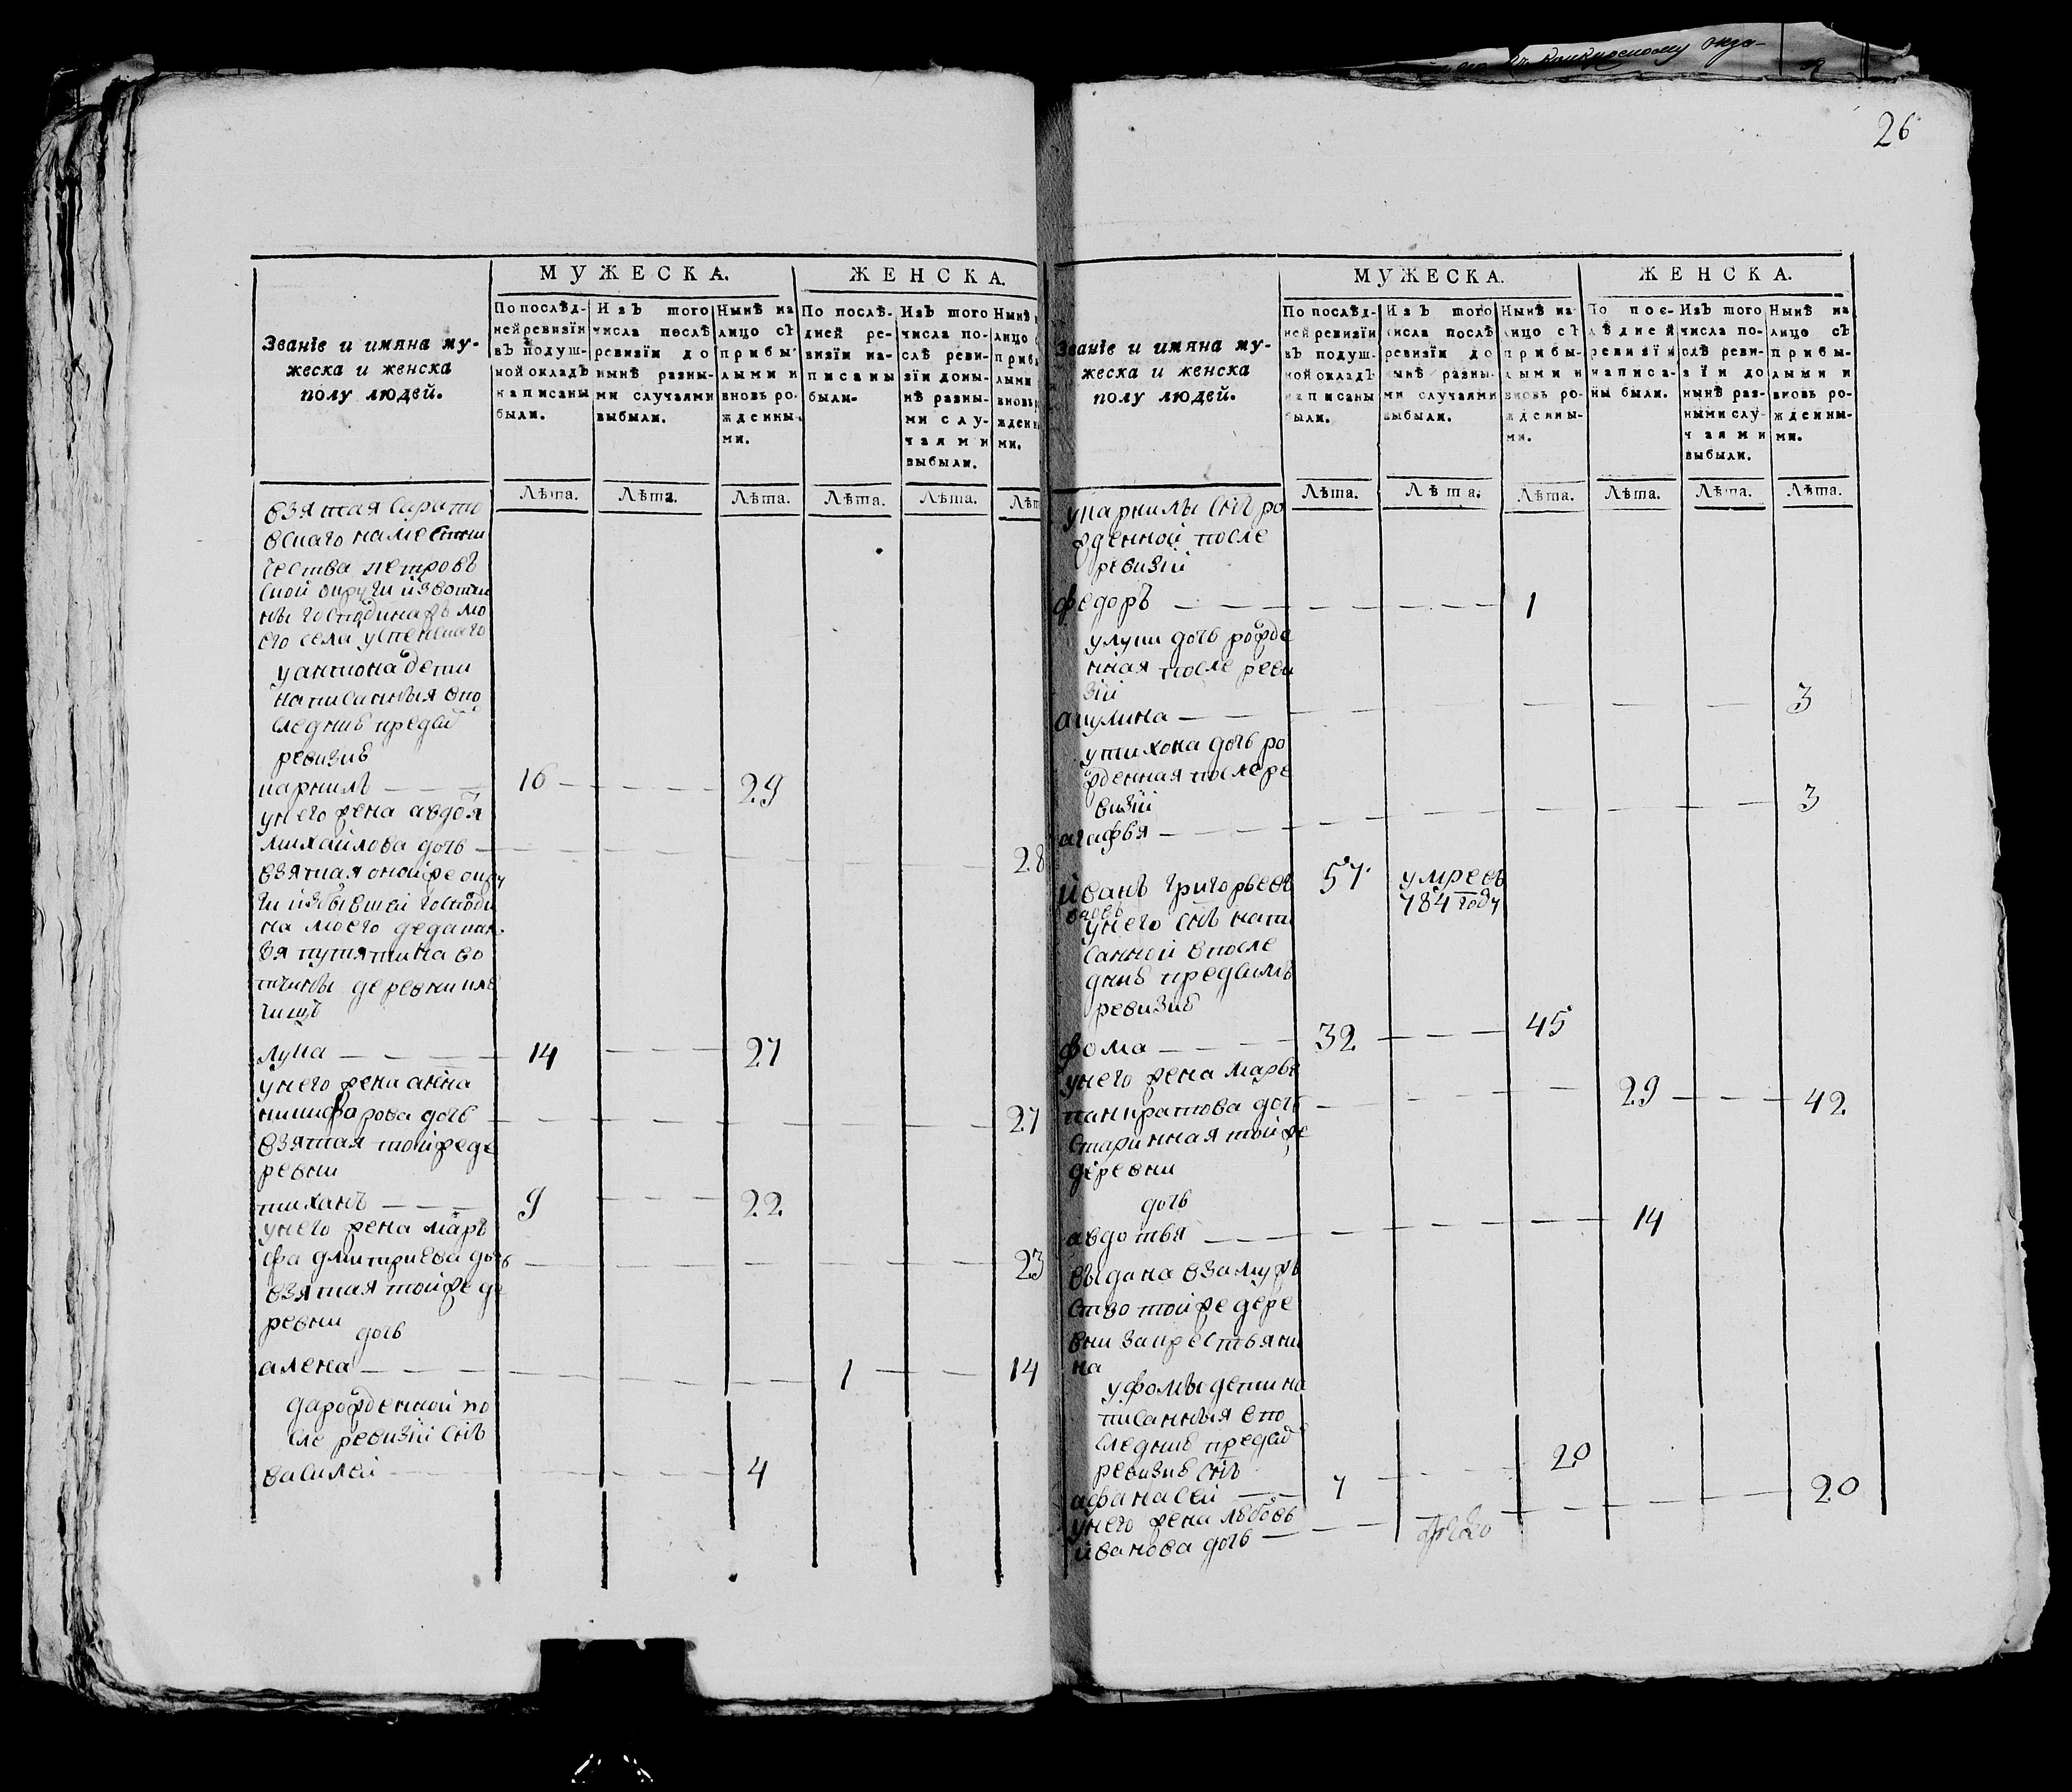 26
МУЖЕСКА.
ЖЕНСКА.
Званіе и имяна му-
жеска и женска
полу людей.
По послѣд-
ней ревизіи
въ подуш-
ной окладъ
написаны
были.
Изъ того
числа послѣ
ревизіи до
нынѣ разны-
ми случаями
выбыли.
Нынѣ на
лицо съ
прибы-
лыми и
вновь ро-
жденны-
ми.
По послѣ-
дней ре-
визіи на-
писаны
были.
Изъ того
числа по-
слѣ реви-
зіи доны-
нѣ разны-
ми слу-
чаями
выбыли.
Нынѣ
лицо
приб
лыми
вновь
жденн
ми.
Лѣта.
Лѣта.
Лѣта.
Лѣта.
Лѣта.
Лѣт
взятая Сарато
вскаго наместни
чества петровъ
ской округи из вотчи
ны господина ж мо
его села успенскаго
у антиона дети
написанныя впо
следнѣ предсей
ревизиѣ
карнилъ 16 29
у него жена авдотя
михайлова дочь 28
взятая оной же окру
ги из бывшей господи
на моего деда кня
зя путятина во
тчины деревни клѣ
чищъ
лука 14 27
у него жена анна
никифарова дочь 27
взятая той же де
ревни
тиханъ 9 22
у него жена марѣ
фа дмитриева дочь 23
взятая той же де
ревни
дочь
алена 1 14
да рожденной по
сле ревизіи снъ
василей 4
МУЖЕСКА.
ЖЕНСКА.
Званіе и имяна му-
жеска и женска
полу людей.
По послѣд-
ней ревизіи
въ подуш-
ной окладъ
написаны
были.
Изъ того
числа послѣ
ревизіи до
нынѣ разны-
ми случаями
выбыли.
Нынѣ на-
лицо съ
прибы-
лыми и
вновь ро-
жденны-
ми.
По пос-
лѣдней
ревизіи
написа-
ны были.
Изъ того
числа по-
слѣ реви-
зіи до
нынѣ раз-
ными слу-
чаями
выбыли.
Нынѣ на
лицо съ
прибы-
лыми и
вновь ро-
жденны-
ми.
Лѣта.
Лѣта.
Лѣта.
Лѣта.
Лѣта.
Лѣта.
у карнилы снъ ро
жденной после
ревизіи
федоръ 1
у луки дочь рожде
нная после реви
зіи
акулина 3
у тихона дочь ро
жденная после ре
визіи
агафья 3
йванъ григорьевъ 57 умре въ
784 году
у него снъ напи
санной в после
днѣ предсимъ
ревизиѣ
фома 32 45
у него жена марья
панкратова дочь 29 42
старинная той же
деревни
дочь
авдотья 14
выдана взамужь
ство той же дере
вни за крестьяни
на
у фомы дети на
писанныя впо
следнѣ предсей
ревизиѣ снъ
афанасей 7 20
у него жена любовь
йванова дочь 20